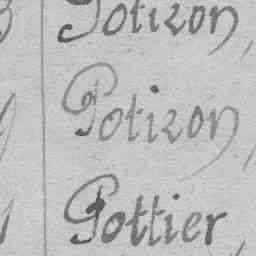 Potizon,
Potizon,
Pottier,